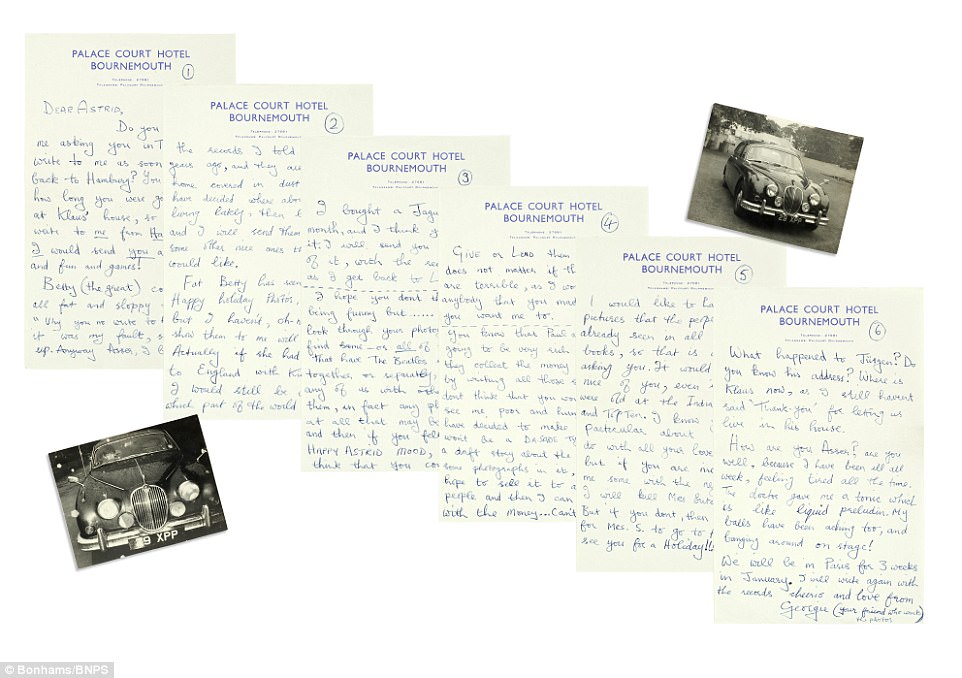 PALACE COURT HOTEL
BOURNEMOUTH
①
DEAR ASTRID,
Do you
me asking you in
write to me as soon
back to Hamburg? You
how long you were
at Klaus' house, so
write to me from
I would send you
and fun and games!
Betty (the great)
all fat and sloppy
it was my fault, s
up. Anyway
PALACE COURT HOTEL
BOURNEMOUTH
②
the records I told
years ago, and they are
home covered in dust
have decided where
living lately. Then
and I will send them
some other nice ones
would like.
Fat Betty has seen
Happy holiday Photos,
but I haven't, oh-
show them to me
Actually if she had
to England with
I would still be
which part of the world
PALACE COURT HOTEL
BOURNEMOUTH
③
I bought a Jagu
month, and I think
it. I will send you
of it, with the
as I get back to L
I hope you dont
being funny but......
look through your photo
find some - or all of
that have The Beatles
together, or separately
any of us with
them, in fact any
at all that may be
and then if you feel
HAPPY ASTRID MOOD,
think that you
PALACE COURT HOTEL
BOURNEMOUTH
④
GIVE or LEND them
does not matter if th
are terrible, as I wo
anybody that you mad
you want me to.
You know that Paul a
going to be very rich
they collect the money
by writing all those s
dont think that you
see me, poor and hun
have decided to make
a daft story about the
some photographs in it,
hope to sell it to a
people and then I can
with the money...Cant
PALACE COURT HOTEL
BOURNEMOUTH
⑤
I would like to ha
pictures that the peop
already seen in all
books, so that is
asking you. It would
nice of you, even
were old at the Indra
and Top Ten. I know
particular about
do with all your love
but if you are
me some with the ne
I will tell Mrs
But if you dont, then
for Mrs. S. to go to
see you for a Holiday!!
PALACE COURT HOTEL
BOURNEMOUTH
⑥
What happened to Jürgen? Do
you know his address? Where is
Klaus now, as I still havent
said 'Thank-you' for letting us
live in his house.
How are you Asser? are you
well, because I have been ill all
week, feeling tired all the time.
The doctor gave me a tonic which
is like liquid preludin. My
balls have been aching too, and
banging around on stage!
We will be in Paris for 3 weeks
in January. I will write again with
the records cheerio and love from
Georgie (your friend who wants
the PHOTOS)
XPP
© Bonhams/BNPS